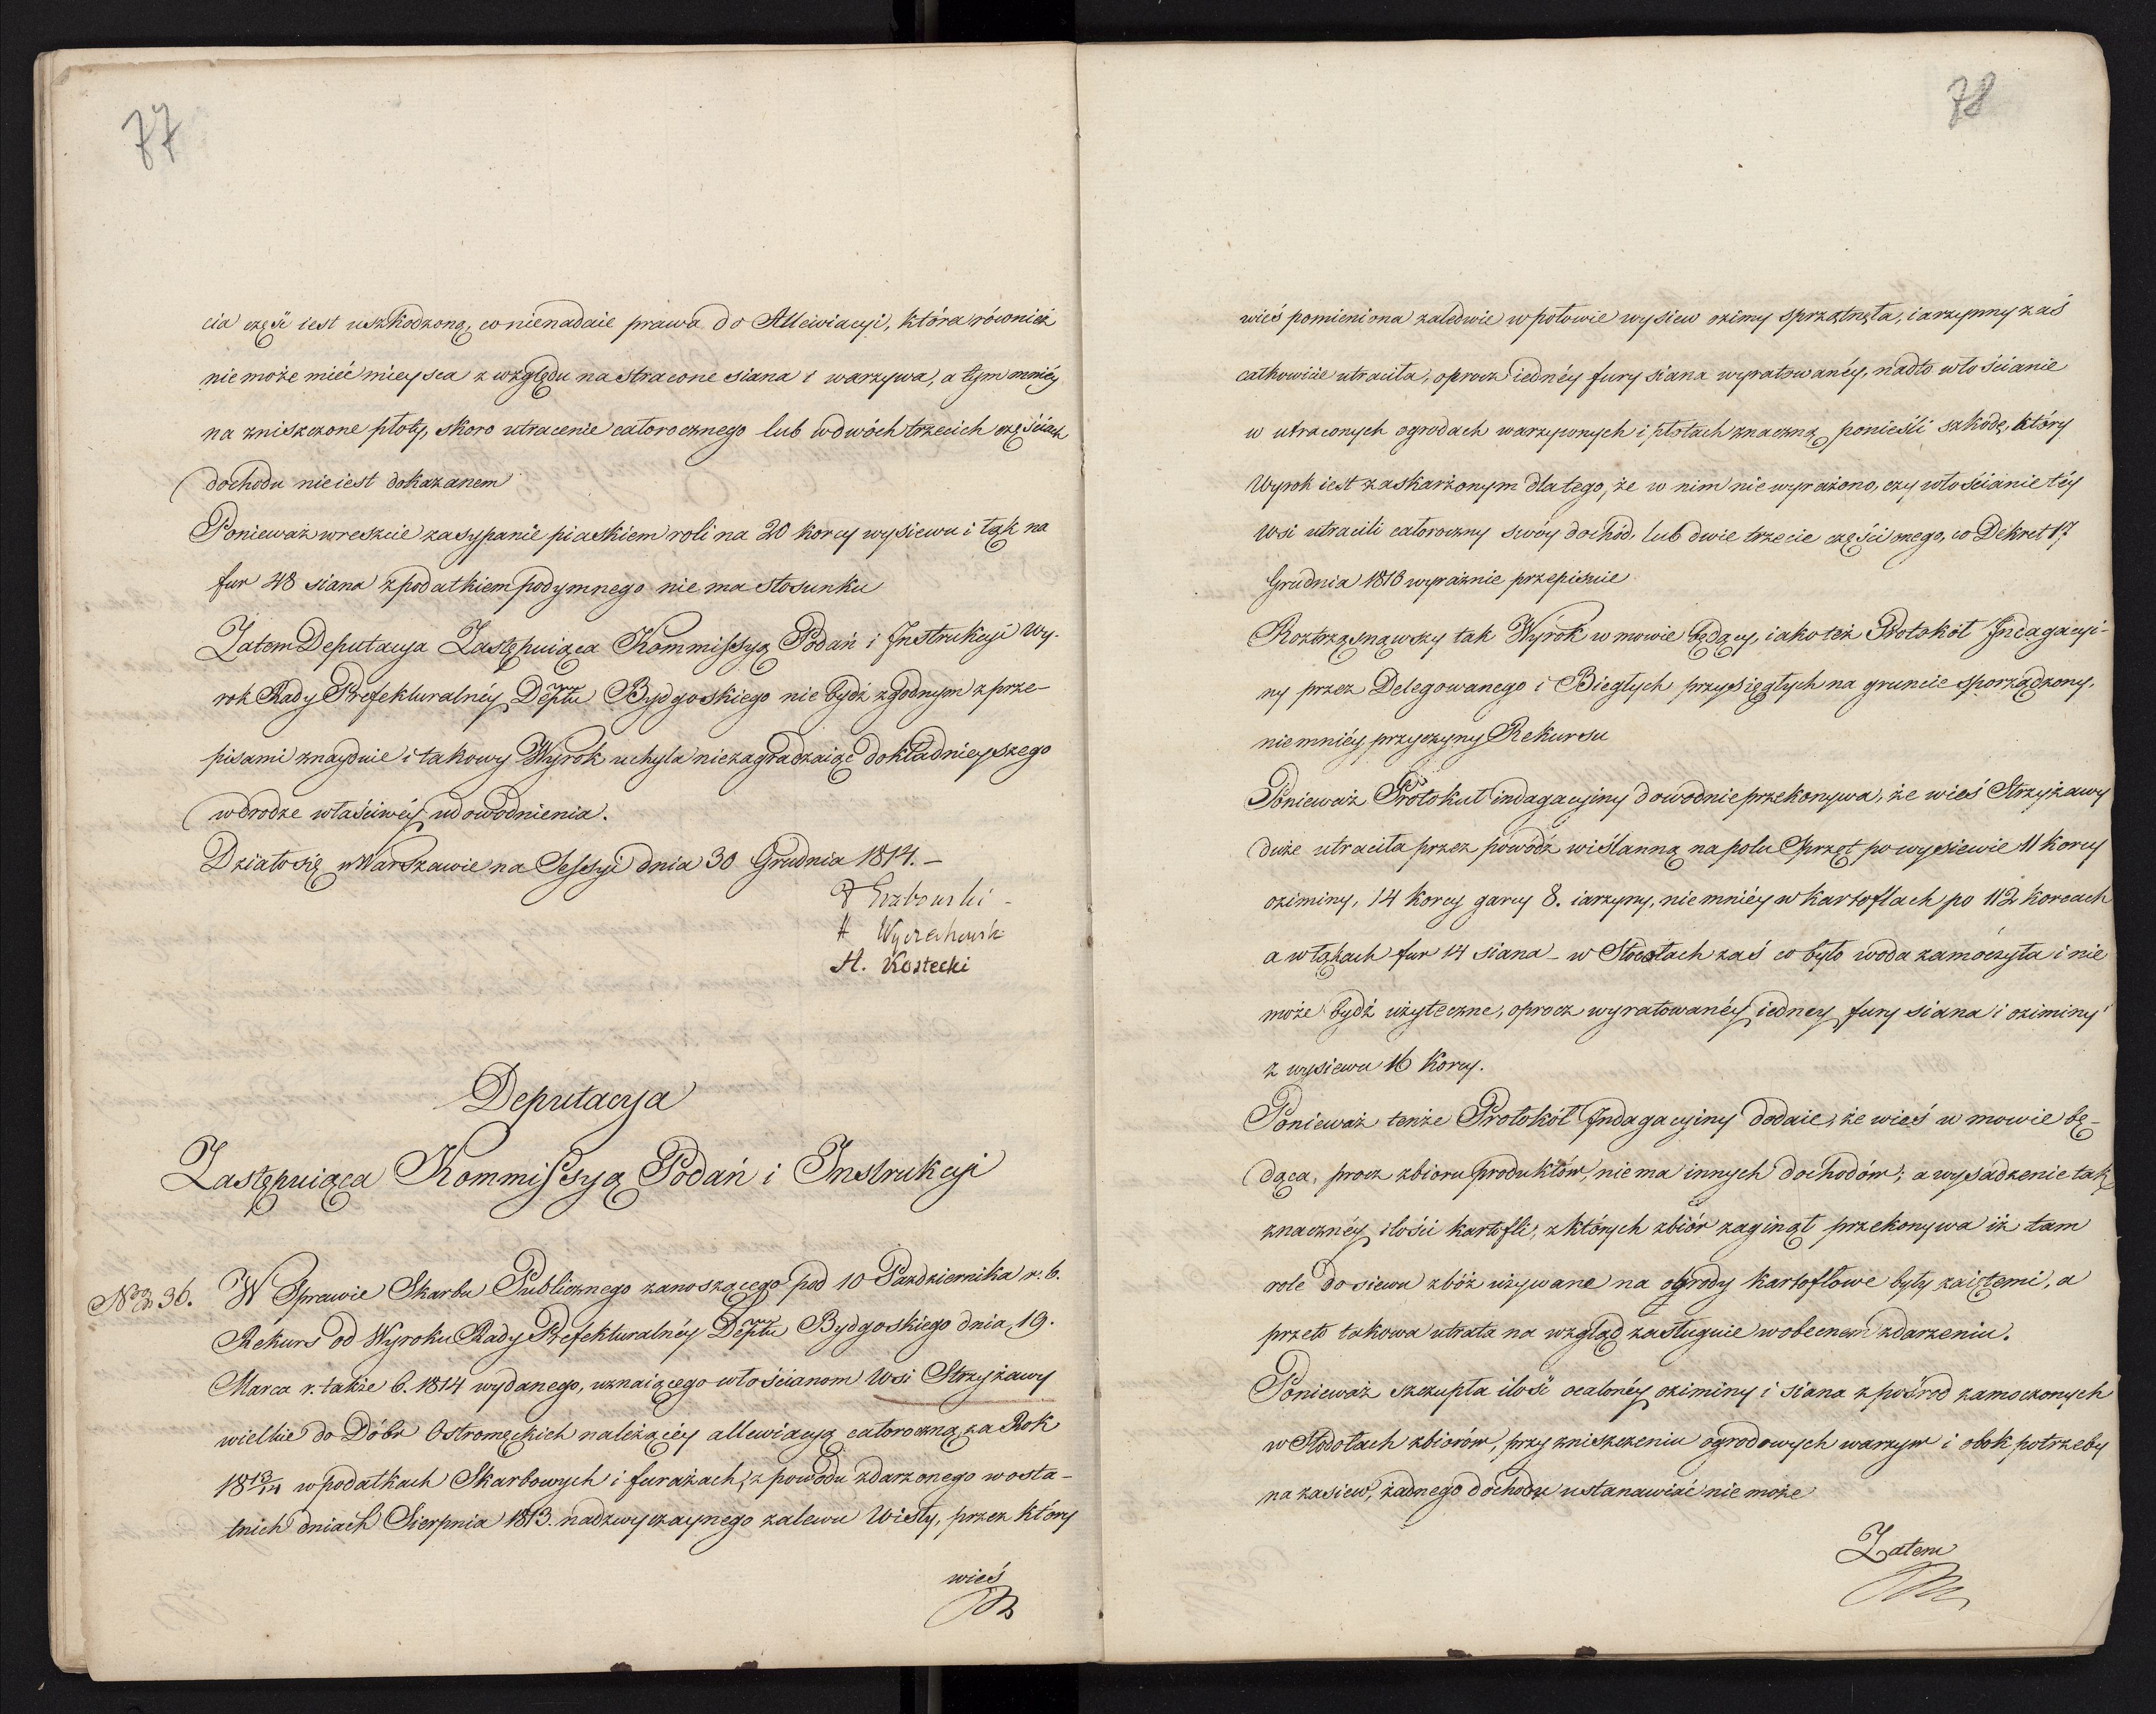 77
cia częśc iest uszkodzoną, co nienadaie prawa do Allewiacyi, która również
nie może mieć mieysca z względu na stracone siana i warzywa, a tym mniéy
na zniszczone płoty, skoro utracenie całorocznego lub wdwóch trzecich częściach
dochodu nieiest dokazanem
Ponieważ wreszcie zasypanie piaskiem roli na 20 korcy wysiewu i łąk na
fur 48 siana z podatkiem podymnego nie ma stosunku
Zatem Deputacya Zastępuiąca Kommissyą Podań i Instrukcyi Wy-
rok Rady Prefekturalnéy Deptu Bydgoskiego nie bydź zgodnym z prze-
pisami znayduie i takowy Wyrok uchyla niezagradzaiąc dokładnieyszego
wdrodze właściwéy udowodnienia.
Działo się w Warszawie na Sessyi dnia 30 Grudnia 1814. –
Grabowski
Wyczechowski
A. Kostecki
Deputacya
Zastępuiąca Kommissyą Podań i Instrukcyi
Nro 36. W Sprawie Skarbu Publicznego zanoszącego pod 10 Pazdziernika r. b.
Rekurs od Wyroku Rady Prefekturalnéy Deptu Bydgoskiego dnia 19.
Marca r. także b. 1814 wydanego, uznaiącego włościanom Wsi Strzyżawy
wielkie do Dóbr Ostromęckich należącéy allewiacyą całoroczną za Rok
1813/14 w podatkach Skarbowych i furażach, z powodu zdarzonego w osta-
tnich dniach Sierpnia 1813. nadzwyczaynego zalewu Wisły, przez który
wieś
78
wieś pomieniona zaledwie w połowie wysiew ozimy sprzątnęła, iarzynny zaś
całkowicie utraciła, oprocz iednéy fury siana wyratowanéy, nadto włościanie
w utraconych ogrodach warzywnych i płotach znaczną ponieśli szkodę, który
Wyrok iest zaskarżonym dlatego, że w nim nie wyrażono, czy włościanie téy
Wsi utracili całoroczny swóy dochód, lub dwie trzecie części onego, co Dekret 17
Grudnia 1813 wyraźnie przepisuie
Roztrząsnąwszy tak Wyrok w mowie będący, iako też Protokół Indagacyi-
ny przez Delegowanego i Biegłych przysięgłych na gruncie sporządzony,
niemniéy przyczyny Rekursu
Ponieważ Protokuł indagacyiny dowodnie przekonywa, że wieś Strzyżawy
duże utraciła przez powódź wiślanną na polu Sprzęt po wysiewie 11 korcy
oziminy, 14 korcy garcy 8. iarzyny, niemniéy w kartoflach po 112 korcach
a w łąkach fur 14 siana – w Stodołach zaś co było woda zamoczyła i nie
może bydź użyteczne, oprocz wyratowanéy iedney fury siana i oziminy
z wysiewu 16 Korcy.
Ponieważ tenże Protokół Indagacyiny dodaie, że wieś w mowie bę-
dąca, procz zbioru produktów, niema innych dochodów; a wysadzenie tak
znacznéy ilości kartofli, z których zbiór zaginął przekonywa iż tam
role do siewu zbóż używane na ogrody kartoflowe były zaiętemi, a
przeto takowa utrata na wzgląd zasługuie w obecnem zdarzeniu.
Ponieważ szczupła ilość ocalonéy oziminy i siana z pośród zamoczonych
w Stodołach zbiorów, przy zniszczeniu ogrodowych warzyw i obok potrzeby
na zasiew, żadnego dochodu ustanawiać nie może
Zatem